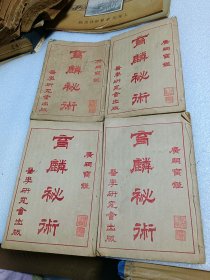 廣嗣寶鑑
育麟祕術
醫學研究會出版
廣嗣寶鑑
育麟祕術
醫學研究會出版
廣嗣寶鑑
育麟祕術
醫學研究會出版
廣嗣寶鑑
育麟祕術
醫學研究會出版